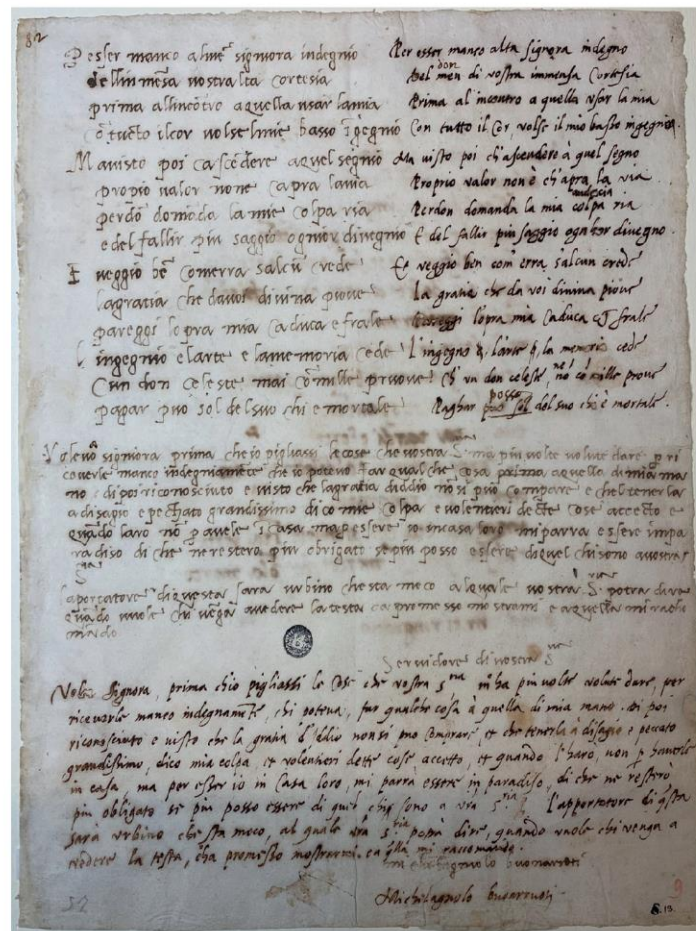 52
Per esser manco alme͂ signiora indegnio
dellinmēsa vostralta cortesia
prima allincōtro aquella usar lamia
cō tucto ilcor volselmie basso īgegnio
Mavisto poi cascēdere aquel segnio
propio valor none capra lavia
perdō domāda la mie colpa ria
e del fallir piu saggio ognior divegnio
E veggio be͂ comerra salcū crede
lagratia che davoi divina piove
pareggi lopra mia caduca e frale
L ingegnio elarte elamemoria cede
cun don celeste mai cō mille pruove
pagar può sol delsuo chi e mortale
Per esser manco alta signora indegno
don
Del men di vostra immensa Cortesia
Prima al incontro a quella usar la mia
Con tutto il Cor, volse il mio basso ingegnio.
Ma visto poi ch'ascendere à quel segno
Proprio valor non è ch'apra la via
audacia
Perdon domanda la mia colpa ria
E del fallir più saggio ogn'hor divegno.
Et veggio ben com'erra s'alcun crede
La gratia che da voi divina piove
Pareggi l'opra mia Caduca et frale
L'ingegno, l'arte, la memoria cede
Ch'un don celeste, non cō mille prove
posso
Paghar può sol del suo chi è mortale.
Volevō signiora prima che io pigliassi le cose che vostra S. m'a piu volte volute dare p ri
cieverle manco indegniamēte che io potevo far qualche cosa prima aquella di mia ma
no dipoi riconosciuto e visto che lagratia diddio nō si può comprare e chel tenerla
adisagio e pechato grandissimo dico mie colpa e volentieri decte cose accecto e
quādo laro nō p avele ī casa ma p essere io incasa loro mi parra essere impa
radiso di che ne restero piu obrigato se piu posso essere di quel chi sono avostra
S.
laportatore di questa sara urbino che sta meco alquale vostra S. potra dire
quādo vuole chi vēga avedere la testa ca promesso mostrarmi e aquella mi racho
mādo
Servidore di vostra S.
Volea Signora, prima chio pigliassi le Cose che vostra S.ria m'ha più volte volute dare, per
riceverle manco indegnamēte, chi poteva, far qualche cosa à quella di mia mano. Di poi
riconosciuto e visto che la gratia d'Iddio non si può Comprare, et che tenerla à disagio è peccato
grandissimo, dico mia colpa, et volentieri dette cose accetto, et quando l'haro, non p haverle
in casa, ma per esser io in Casa loro, mi parrà essere in paradiso, di che ne resterò
più obligato se più posso essere di quel chio sono a vrā S.ria l'apportatore di qsta
sarà urbino che sta meco, al quale vrā S.ria potrà dire, quando vuole chi venga a
vedere la testa, cha promesso mostrarmi. et a qlla mi raccomando.
michelagniolo buonarroti
Michelagnolo buonarruoti
52
9